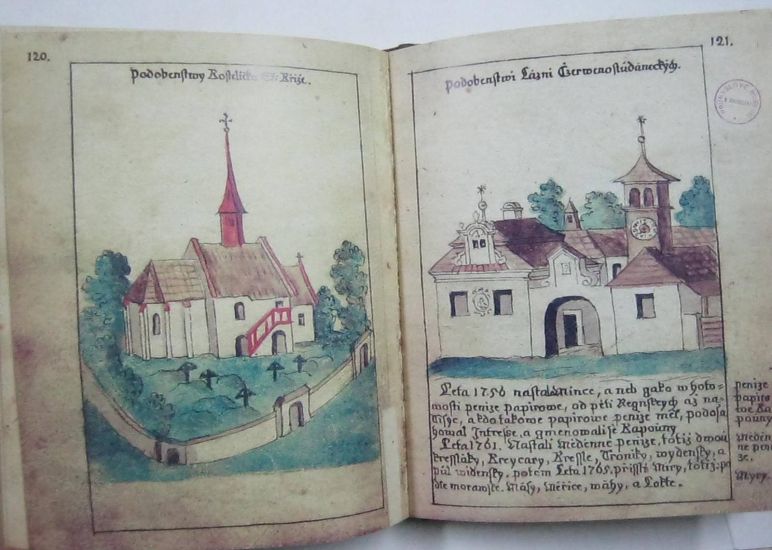 120.
Podobenstwy Kostelicka S. Kříže.
121.
Podobenstwi Lázni Czerwenostůdáneckých.
Leta 1756 nastali Mince, a neb gako w hoto-
mosti penize papirowe, od pěti Regnskych až na
tisyc, a kdo takowe papirowe penize měl, podosa-
howal Intresse, a gmenowali se Kapouny
Leta 1761. Nastali Měděnne peníze, totiž dwou
kreyslaky, Kreycary, Kressle, Troniky, wydensky, a
půl widensky. potem Leta 1765. přissli Miry, totiž po-
dle morawske. Másy, Měřice, wáhy, a Lokte.
penize
papiro
we Ka
pouny
Měděn
ne peni
ze.
Myry.